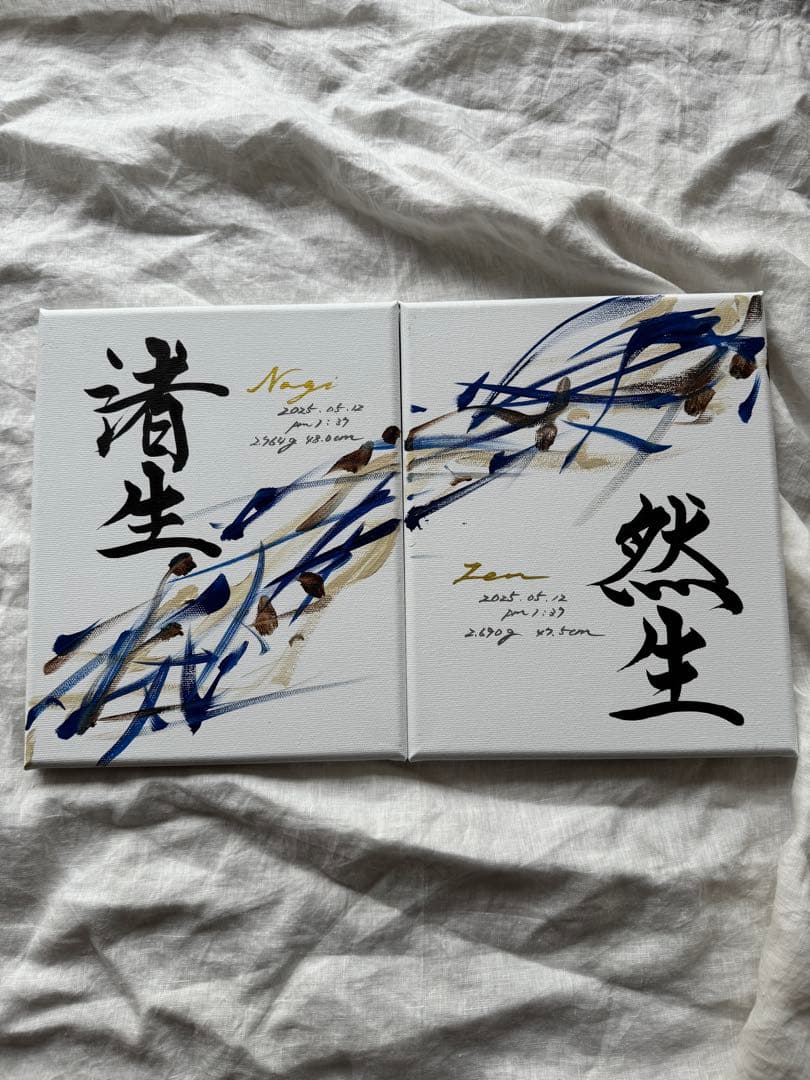 渚生
Nagi
2025.05.12
pm 1:37
2.964g 48.0cm
Zen
2025.05.12
pm 1:39
2.690g 47.5cm
然生